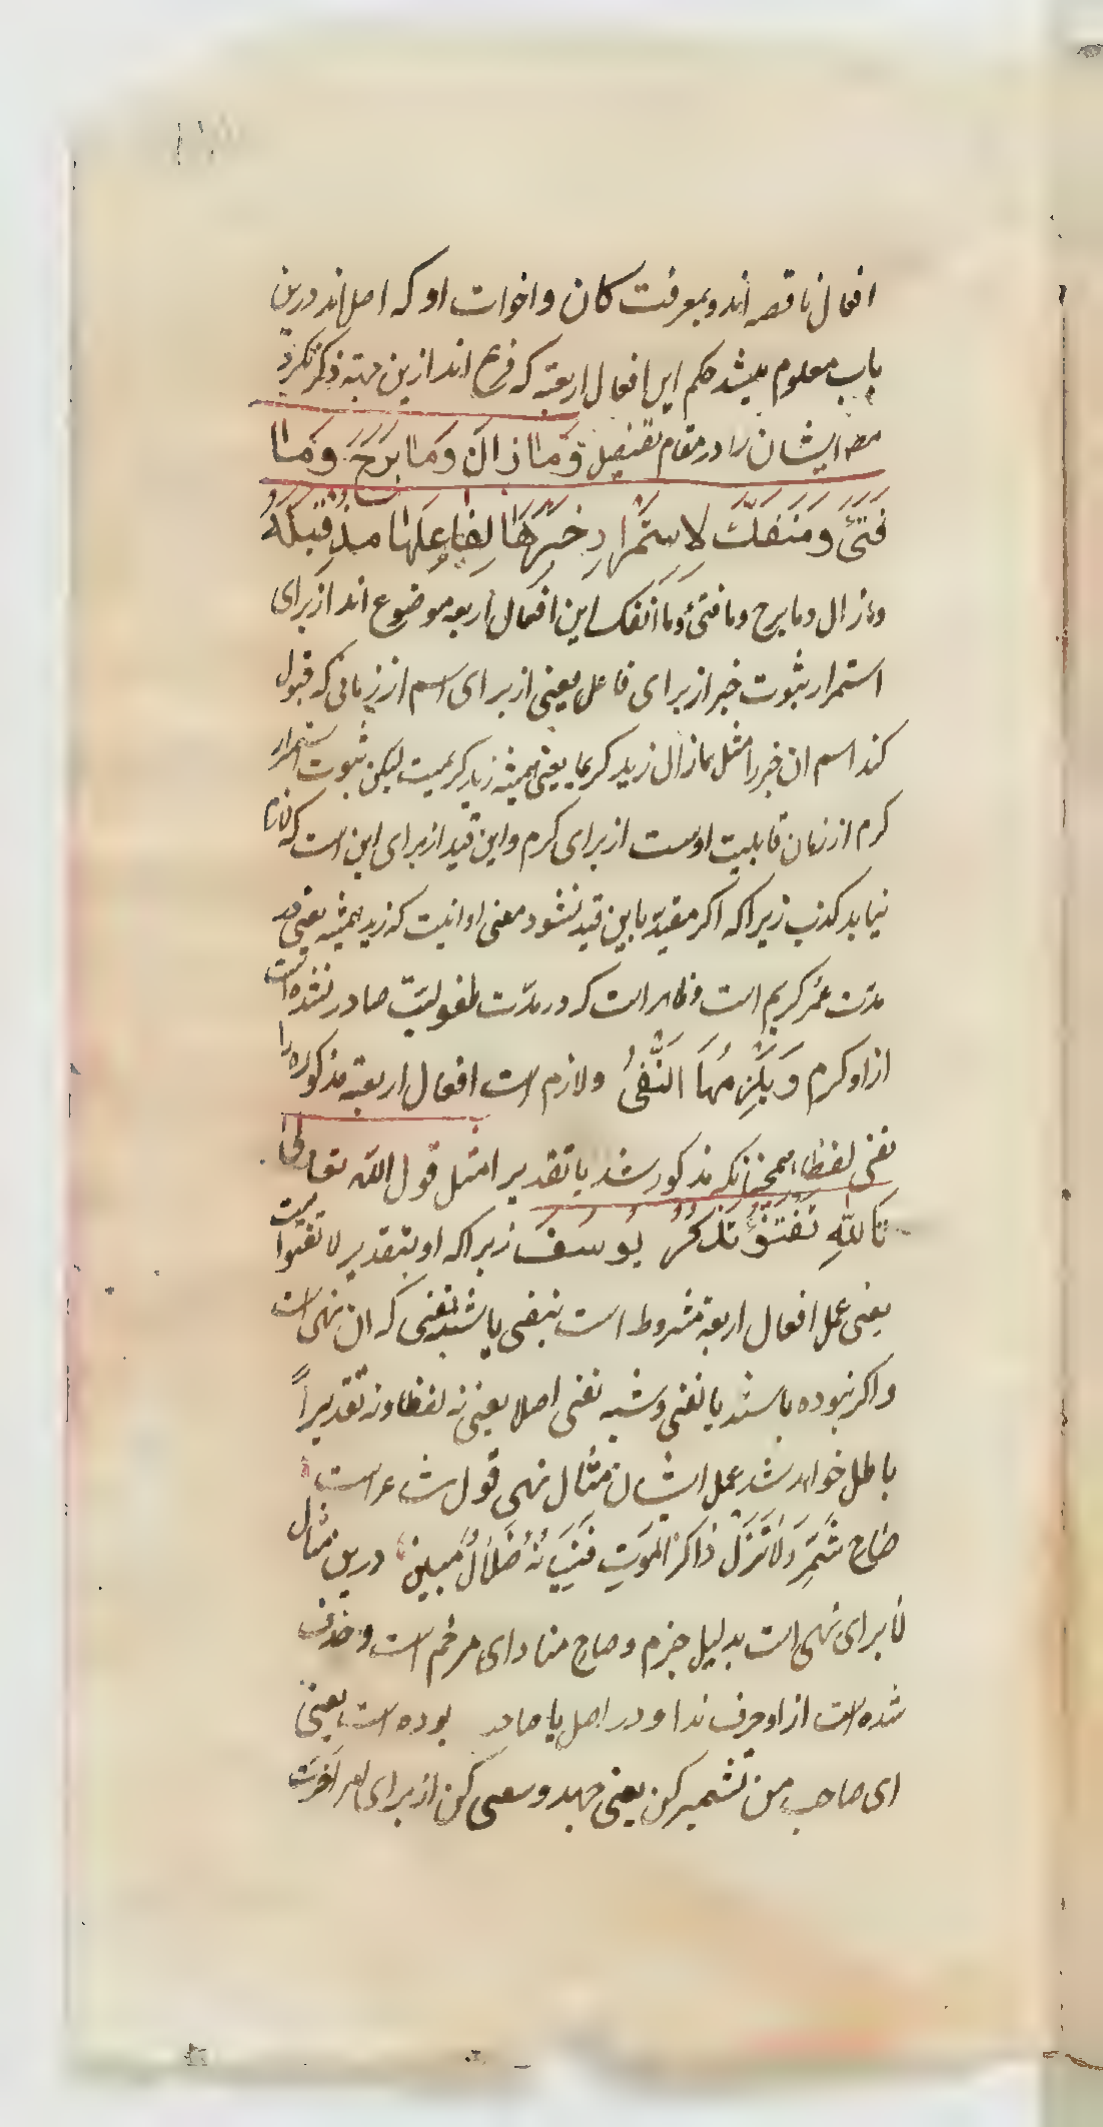 افعال ناقصه اند و بمعرفت کان و اخوات او که اصل اند درین
باب معلوم میشد حکم این افعال اربعة که فرع اند ازین جهته ذکر نکرد
مصـ ایشان را در مقام تفصیل وَمَا زالَ وَمَا بَرَحَ وَمَا
فَتَئَ وَمَنفَكَّ لِاستِمْرارِ خَبَرِهَا لِفاعِلَهَا مذ قَبِلَهُ
و ما زال و ما برح و ما فتئ و ما انفک این افعال اربعه موضوع اند از برای
استمرار ثبوت خبر از برای فاعل یعنی از برای اسم از زمانی که قبول
کند اسم ان خبر را مثل ما زال زید کریما یعنی همیشه زید کریمست لیکن ثبوت استمرار
کرم از زمان قابلیت اوست از برای کرم و این قید از برای این است که لازم
نیاید کذب زیرا که اکر مقید باین قید نشود معنی او اینست که زید همیشه یعنی در
مدت عمر کریم است و ظاهر است که در مدّت طفولیّت صادر نشده است
از او کرم وَيَلْزِمُهَا النَّفْىُ و لازم است افعال اربعة مذکوره را
نفی لفظا همچنانکه مذکور شد یا تقدیرا مثل قول الله تعالی
تَاللهِ تَفْتَؤُ تَذكُرُ يُوسُفَ زیرا که او بتقدیر لا تفتوا است
یعنی عمل افعال اربعة مشروط است بنفی یا شبه نفی که ان نهی است
و اکر نبوده باشند با نفی و شبه نفی اصلا یعنی نه لفظا و نه تقدیراً
باطل خواهد شد عمل ایشان مثال نهی قول شاعر است
صَاح شَمِّرْ وَلَاتَزَلْ ذاكرَ المَوتِ فَنِسْيَانُهُ ضَلَالٌ مُبِين درین مثال
لا برای نهی است بدلیل جزم و صاح منادای مرخم است و حذف
شده است از او حرف ندا و در اصل یا صاحبـ بوده است یعنی
ای صاحب من تشمیر کن یعنی جهد و سعی کن از برای امر اخرت